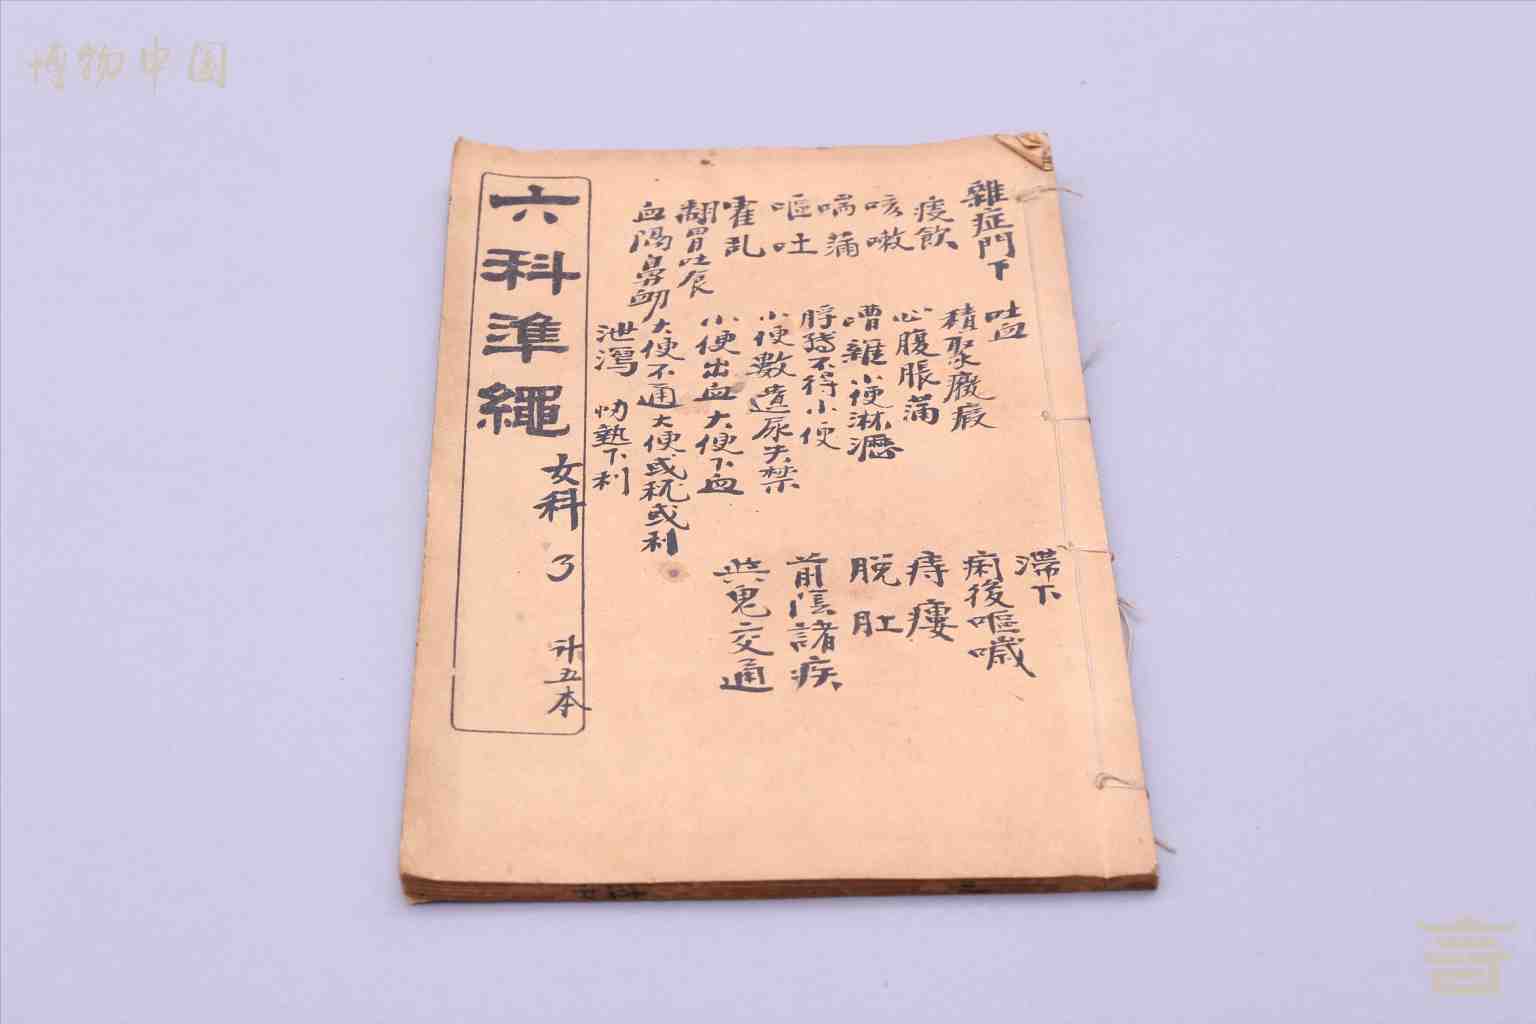 博物中国
雜症門下
痰飲
咳嗽
喘滿
嘔吐
霍乱
翻胃吐食
血隔鼻衂
吐血
積聚癥瘕
心腹脹滿
嘈雜小便淋瀝
脬轉不得小便
小便數遺尿失禁
小便出血大便下血
大便不通大便或秘或利
泄瀉
協熱下利
滯下
痢後嘔噦
痔瘻
脱肛
前陰諸疾
與鬼交通
六科準繩
女科
3
计五本